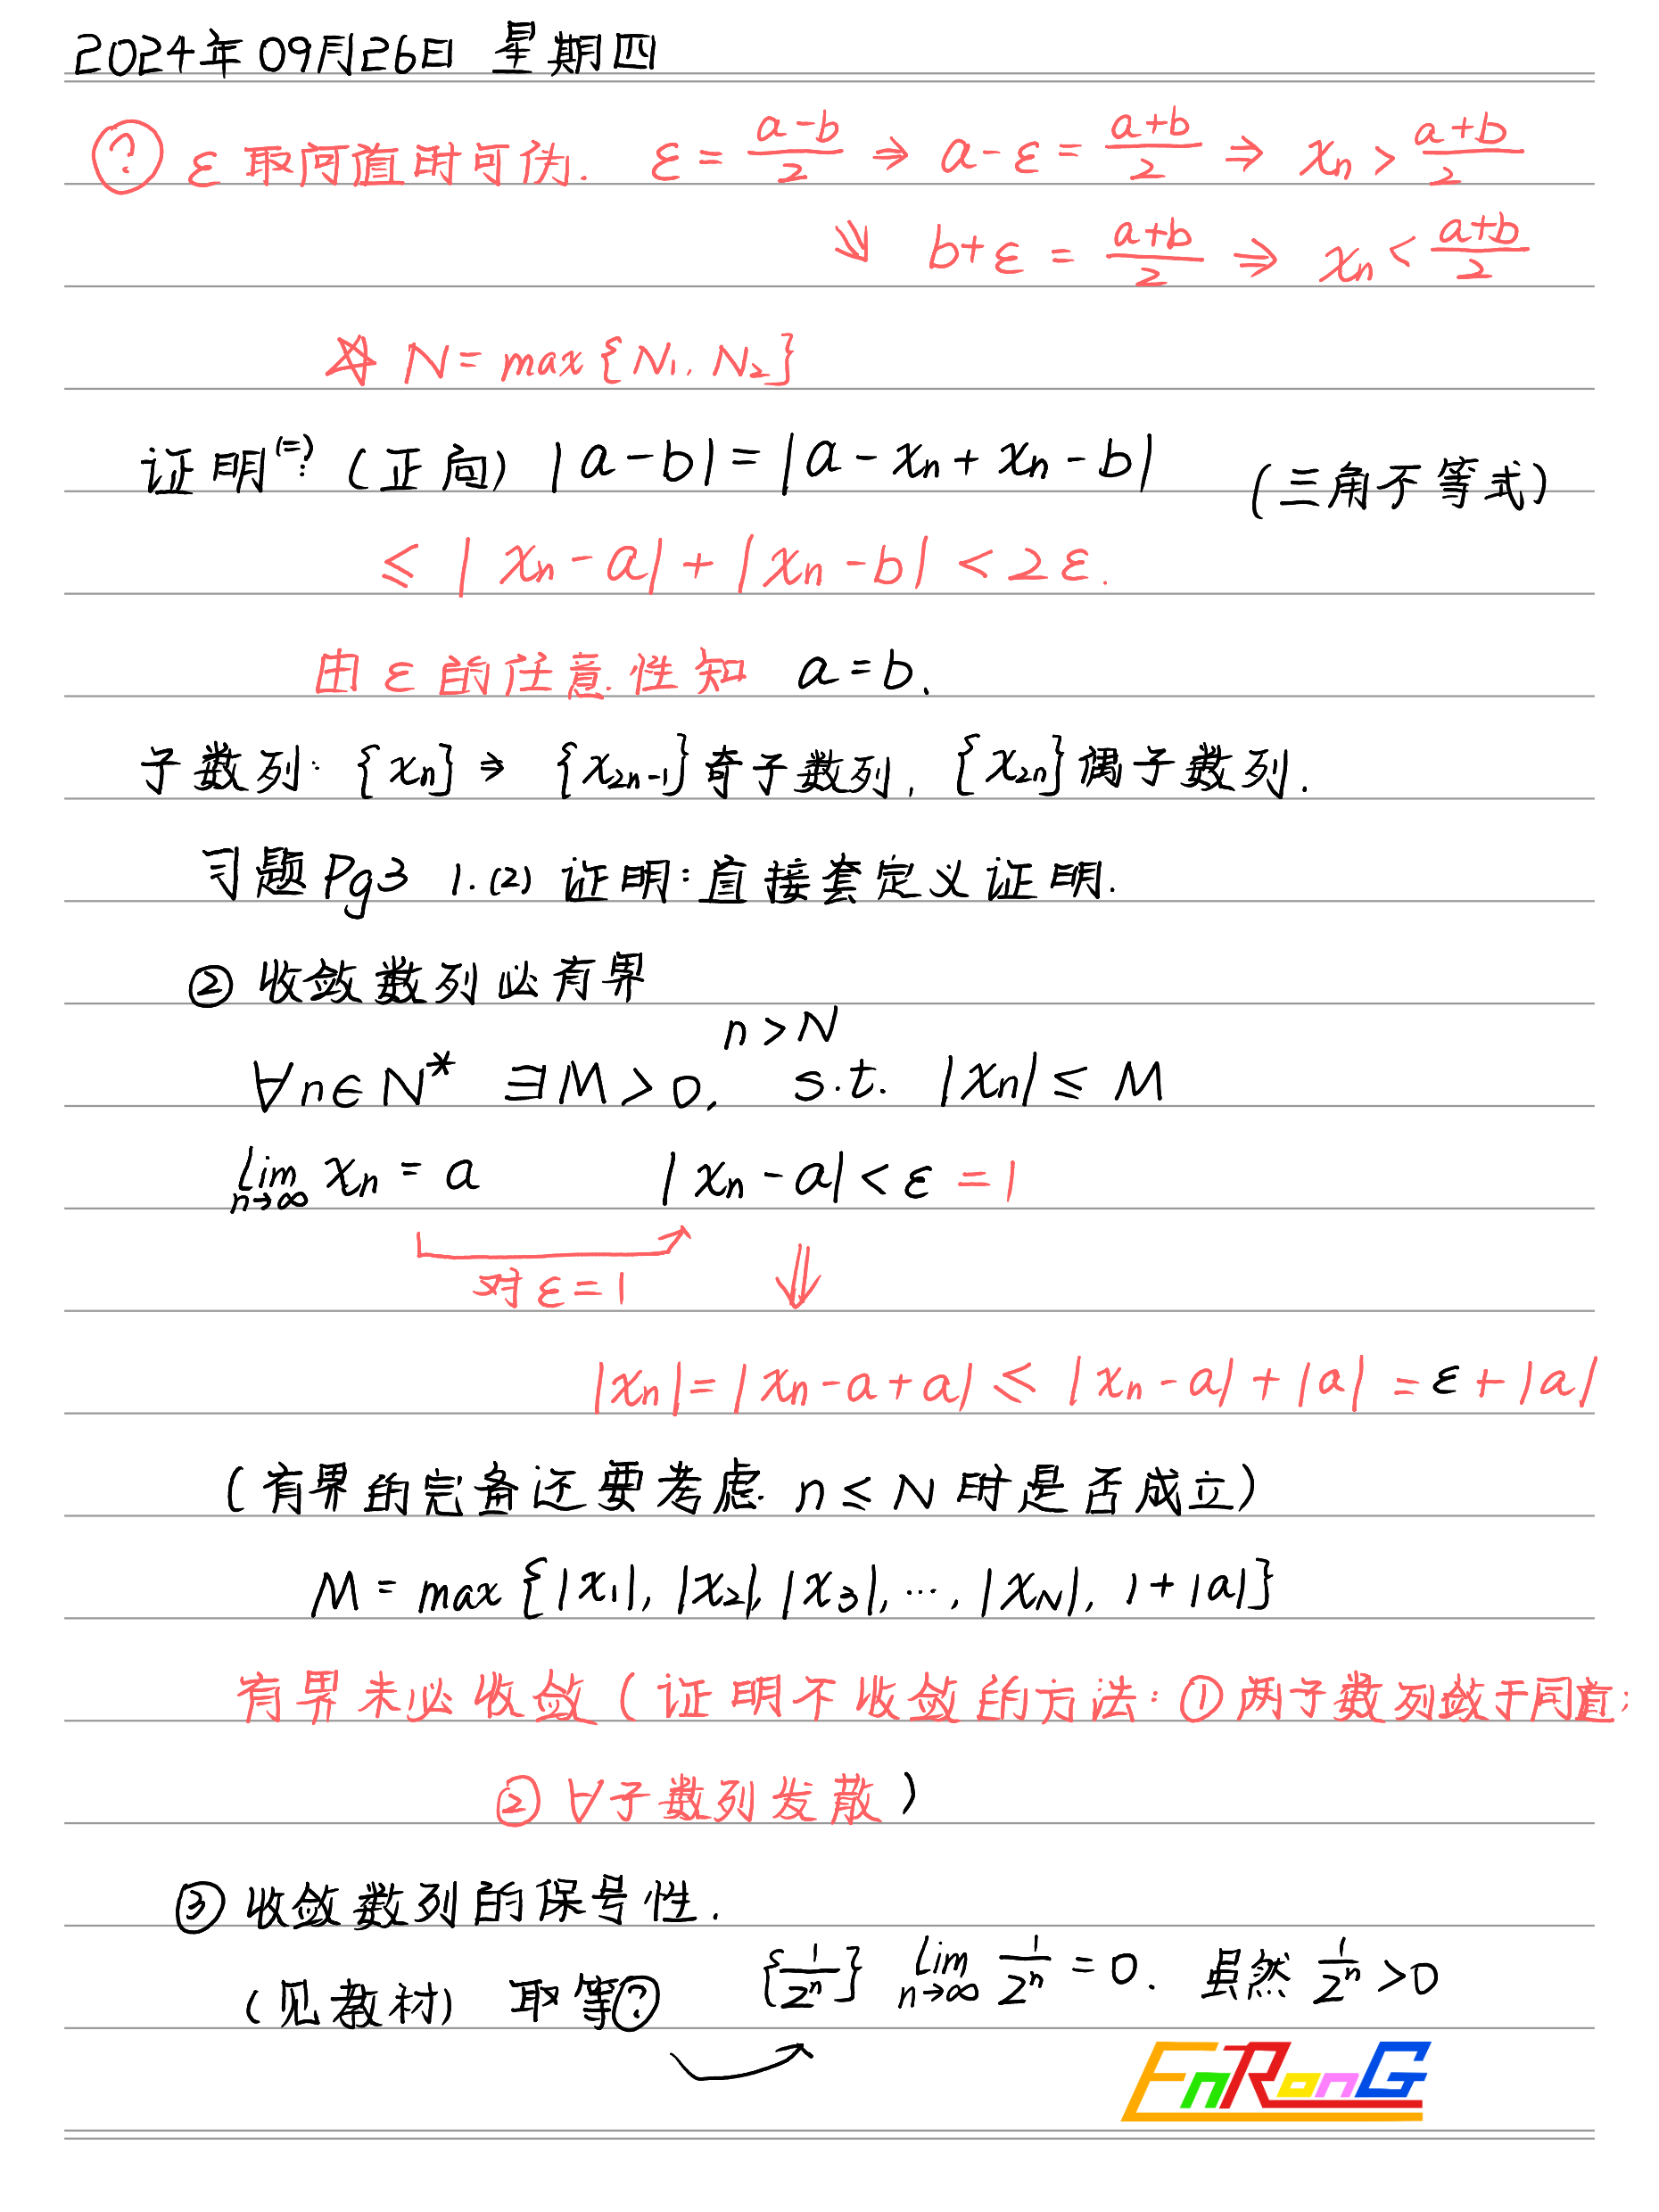 2024年09月26日 星期四
? ε取何值时可伪. ε = (a-b)/2 ⇒ a-ε = (a+b)/2 ⇒ xₙ > (a+b)/2
⇓ b+ε = (a+b)/2 ⇒ xₙ < (a+b)/2
☆ N = max {N₁, N₂}
证明(二): (正向) |a-b| = |a-xₙ+xₙ-b| (三角不等式)
≤ |xₙ-a|+|xₙ-b| < 2ε.
由 ε 的任意性知 a=b.
子数列: {xₙ} ⇒ {x₂ₙ₋₁}奇子数列, {x₂ₙ}偶子数列.
习题 Pg3 1.(2) 证明:直接套定义证明.
② 收敛数列必有界
n>N
∀n∈N* ∃M>0, s.t. |xₙ| ≤ M
lim n→∞ xₙ = a |xₙ-a| < ε = 1
对 ε=1 ⇓
|xₙ| = |xₙ-a+a| ≤ |xₙ-a|+|a| = ε+|a|
(有界的完备还要考虑 n≤N 时是否成立)
M = max {|x₁|, |x₂|, |x₃|, …, |x_N|, 1+|a|}
有界未必收敛 (证明不收敛的方法: ①两子数列敛于同直
② ∀子数列发散)
③ 收敛数列的保号性.
(见教材) 取等? {1/2ⁿ} lim n→∞ 1/2ⁿ = 0. 虽然 1/2ⁿ >0
EnRonG